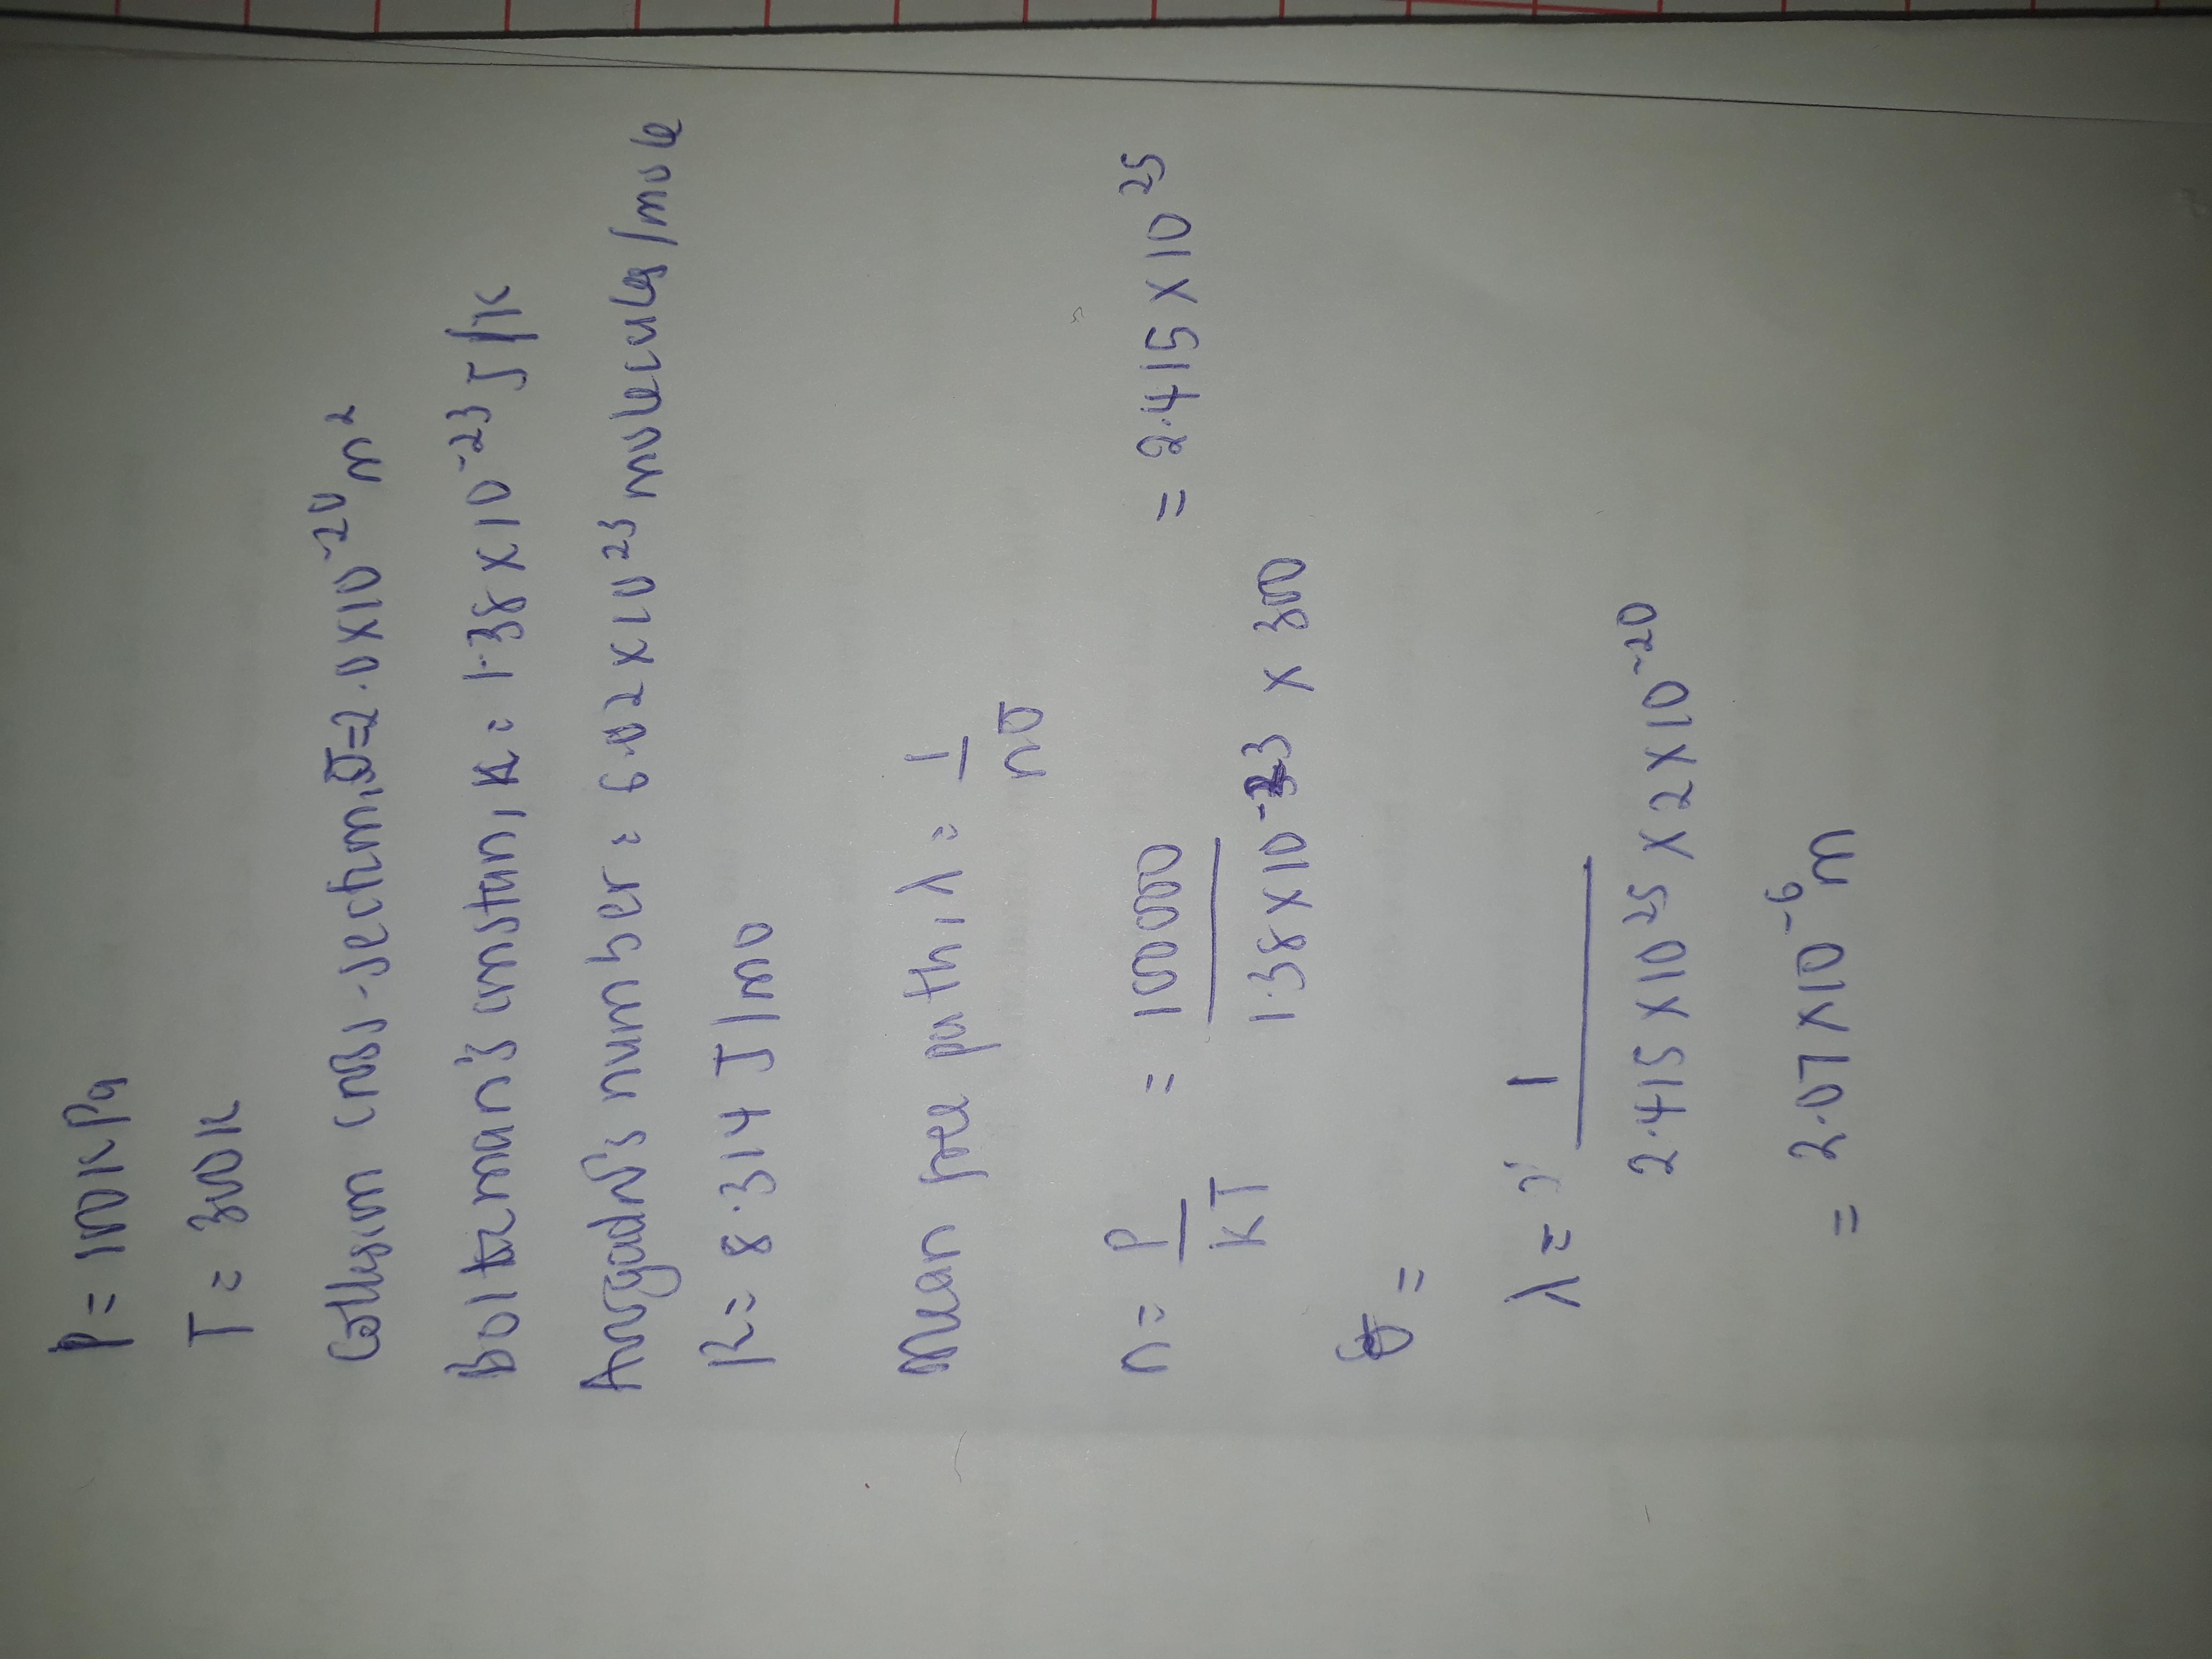 P = 100kPa
T = 300k
Collision cross-section, σ = 2.0 x 10⁻²⁰ m²
Boltzman's constan, k = 1.38 x 10⁻²³ J/k
Avogadro's number = 6.02 x 10²³ molecules/mole
R = 8.314 J/mo
Mean free path, λ = 1/nσ
n = P/kT = 100000/1.38 x 10⁻²³ x 300 = 2.415 x 10²⁵
=
λ = 1/2.415 x 10²⁵ x 2 x 10⁻²⁰
= 2.07 x 10⁻⁶ m